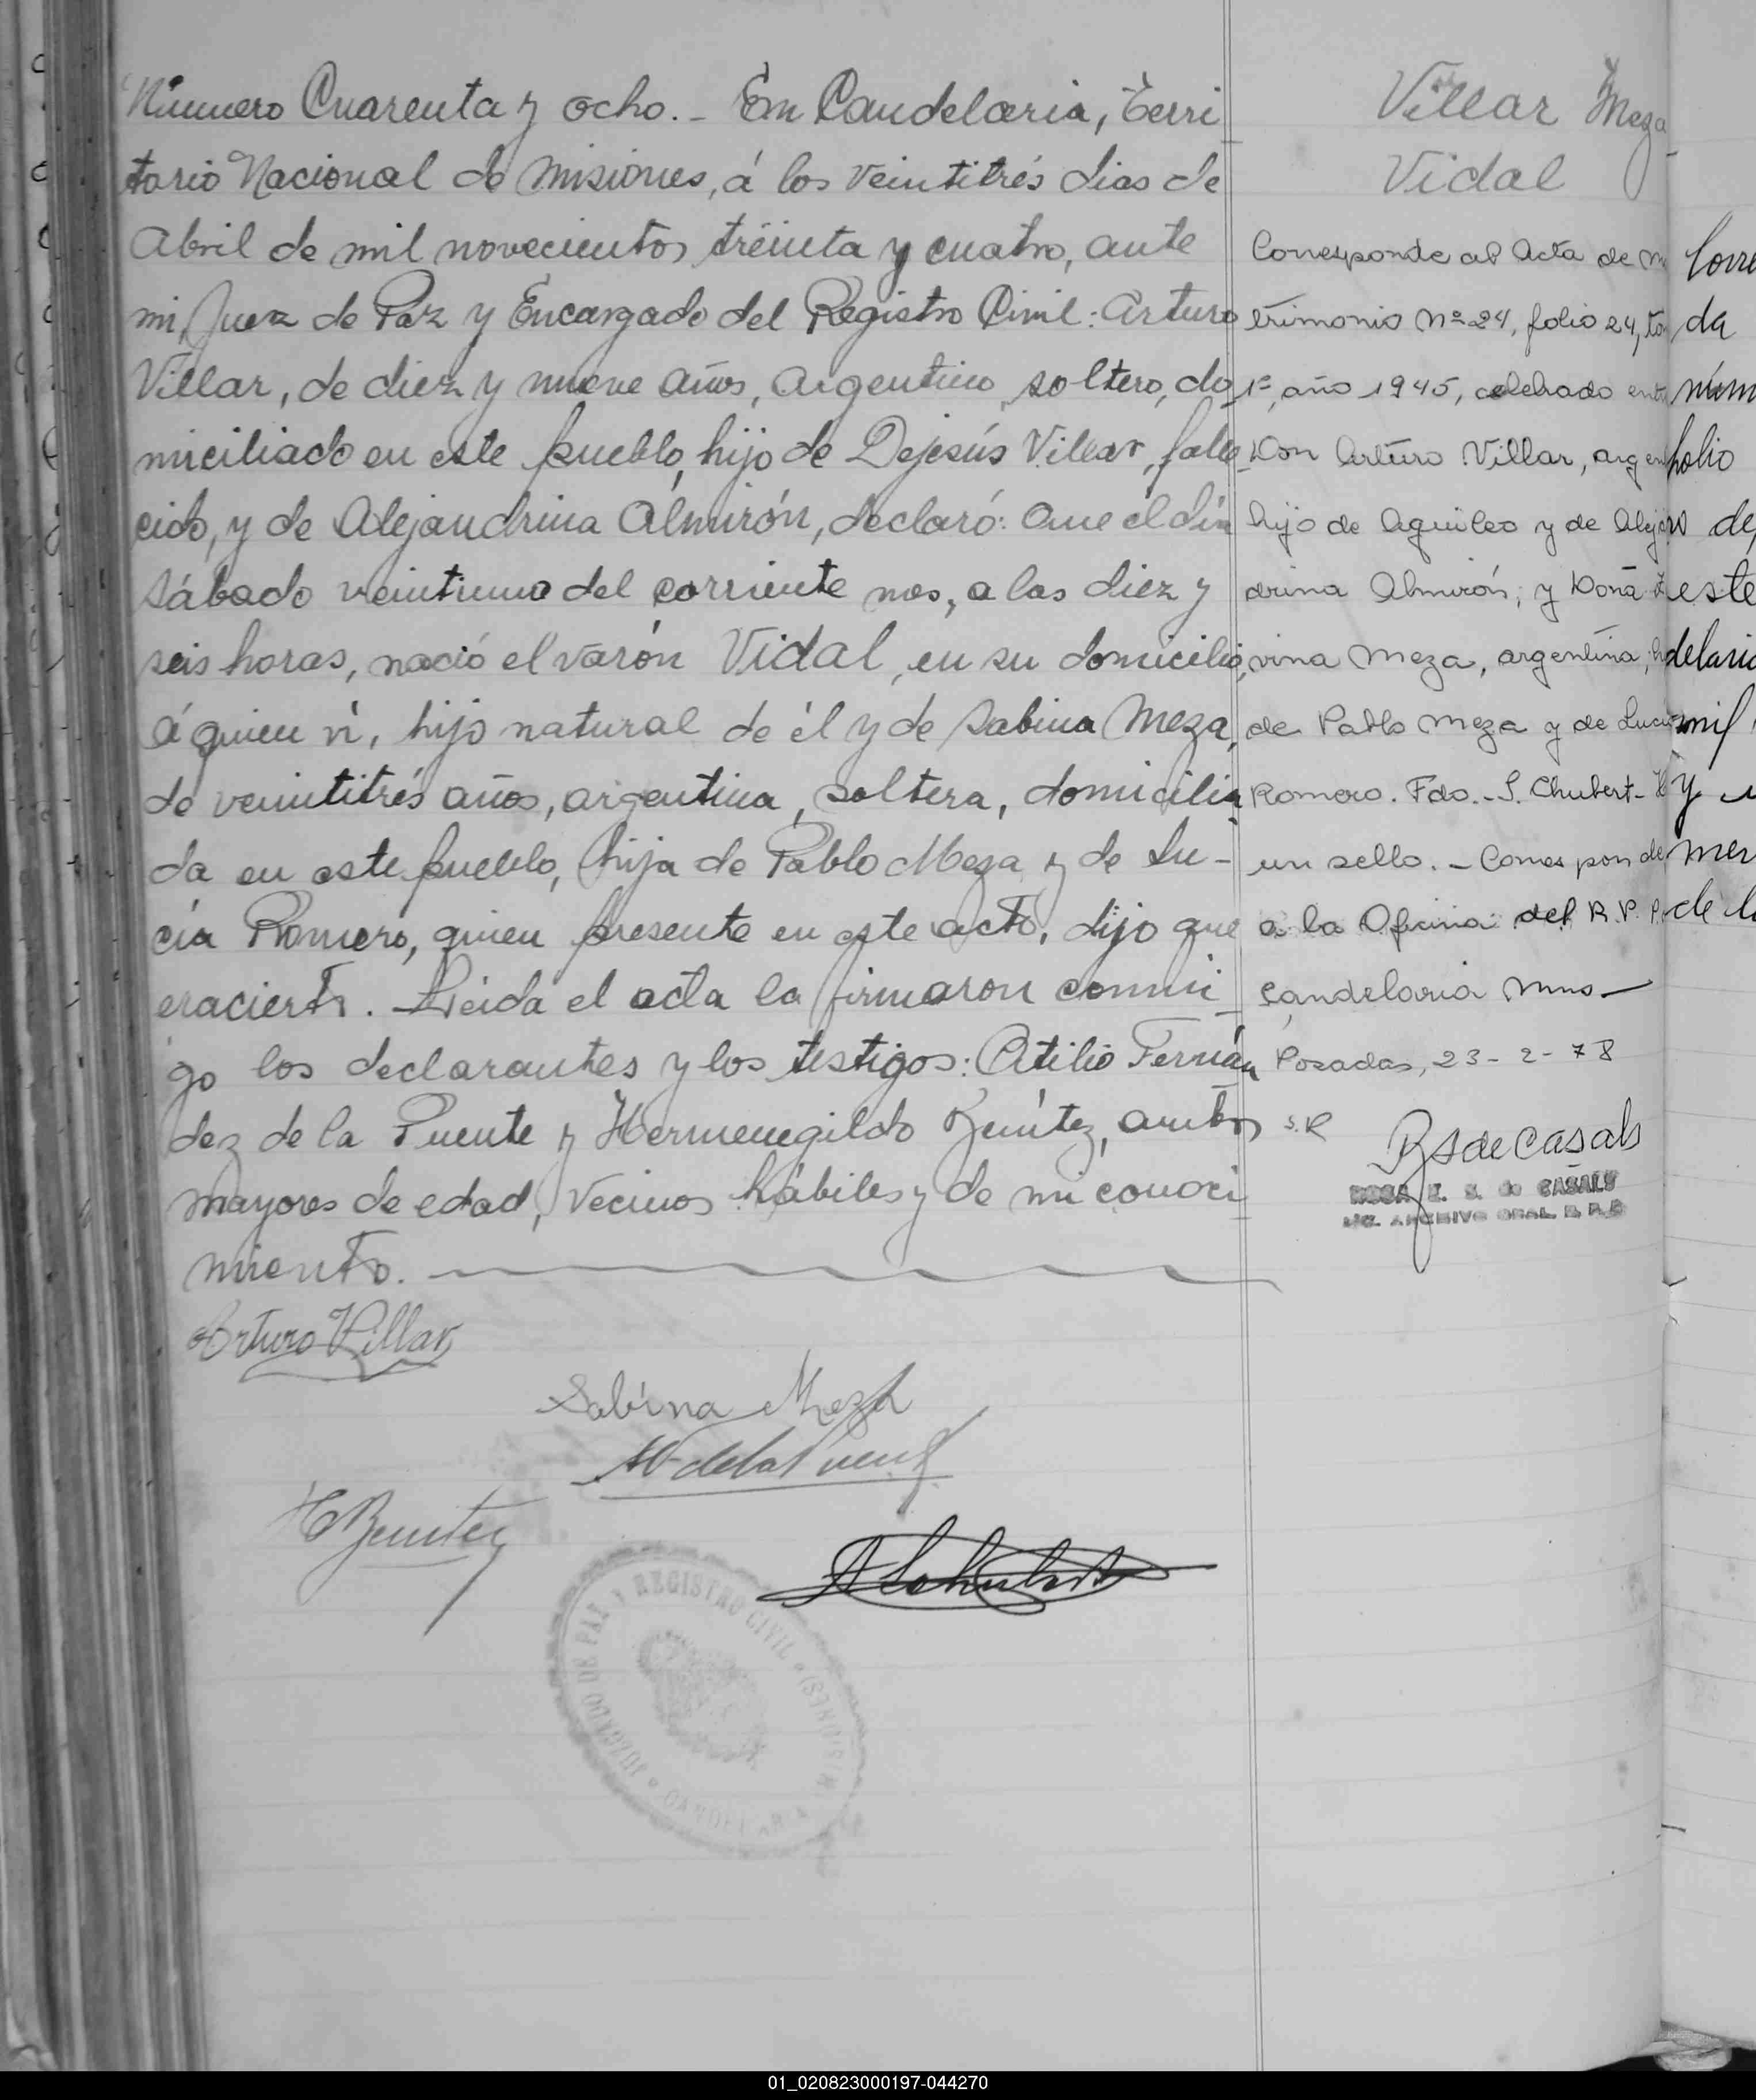 Número Cuarenta y ocho. - En Candelaria, Terri
torio Nacional de Misiones, á los veintitrés dias de
Abril de mil novecientos treinta y cuatro, ante
mi, Juez de Paz y Encargado del Registro Civil: Arturo
Villar, de diez y nueve años, argentino, soltero, do
miciliado en este pueblo, hijo de Dejesús Villar, falle
cido, y de Alejandrina Almirón, declaró: Que el día
sábado veintiuno del corriente mes, a las diez y
seis horas, nació el varón Vidal, en su domicilio,
á quien ví, hijo natural de él y de Sabina Meza,
de veintitrés años, argentina, soltera, domicilia
da en este pueblo, hija de Pablo Meza y de Lu-
cía Romero, quien presente en este acto, dijo que
era cierto. - Leida el acta la firmaron conmi
go los declarantes y los testigos: Atilio Fernán
dez de la Puente y Hermenegildo Benítez, ambos
mayores de edad, vecinos hábiles y de mi conoci
miento.
Arturo Villar
Sabina Meza
de la Puente
H Benitez
A Schubert
JUZGADO DE PAZ Y REGISTRO CIVIL (MISIONES)
Villar Meza
Vidal
Corresponde al Acta de m
trimonio Nº 24, folio 24, to
1º, año 1945, celebrado ent
Don Arturo Villar, argen
hijo de Aquileo y de Alej
drina Almirón, y Doña
vina Meza, argentina, h
de Pablo Meza y de Luc
Romero. Fdo. - S. Chubert - H
un sello. - Corresponde
a la Oficina del R.P.P.
Candelaria Mnes
Posadas, 23-2-78
S.R
RS de Casals
ROSA E. S. de CASALS
ARCHIVO GRAL. R. P. P
Corre
da
núm
folio
de
este
delaria
mil
y
mer
de l
01_020823000197-044270